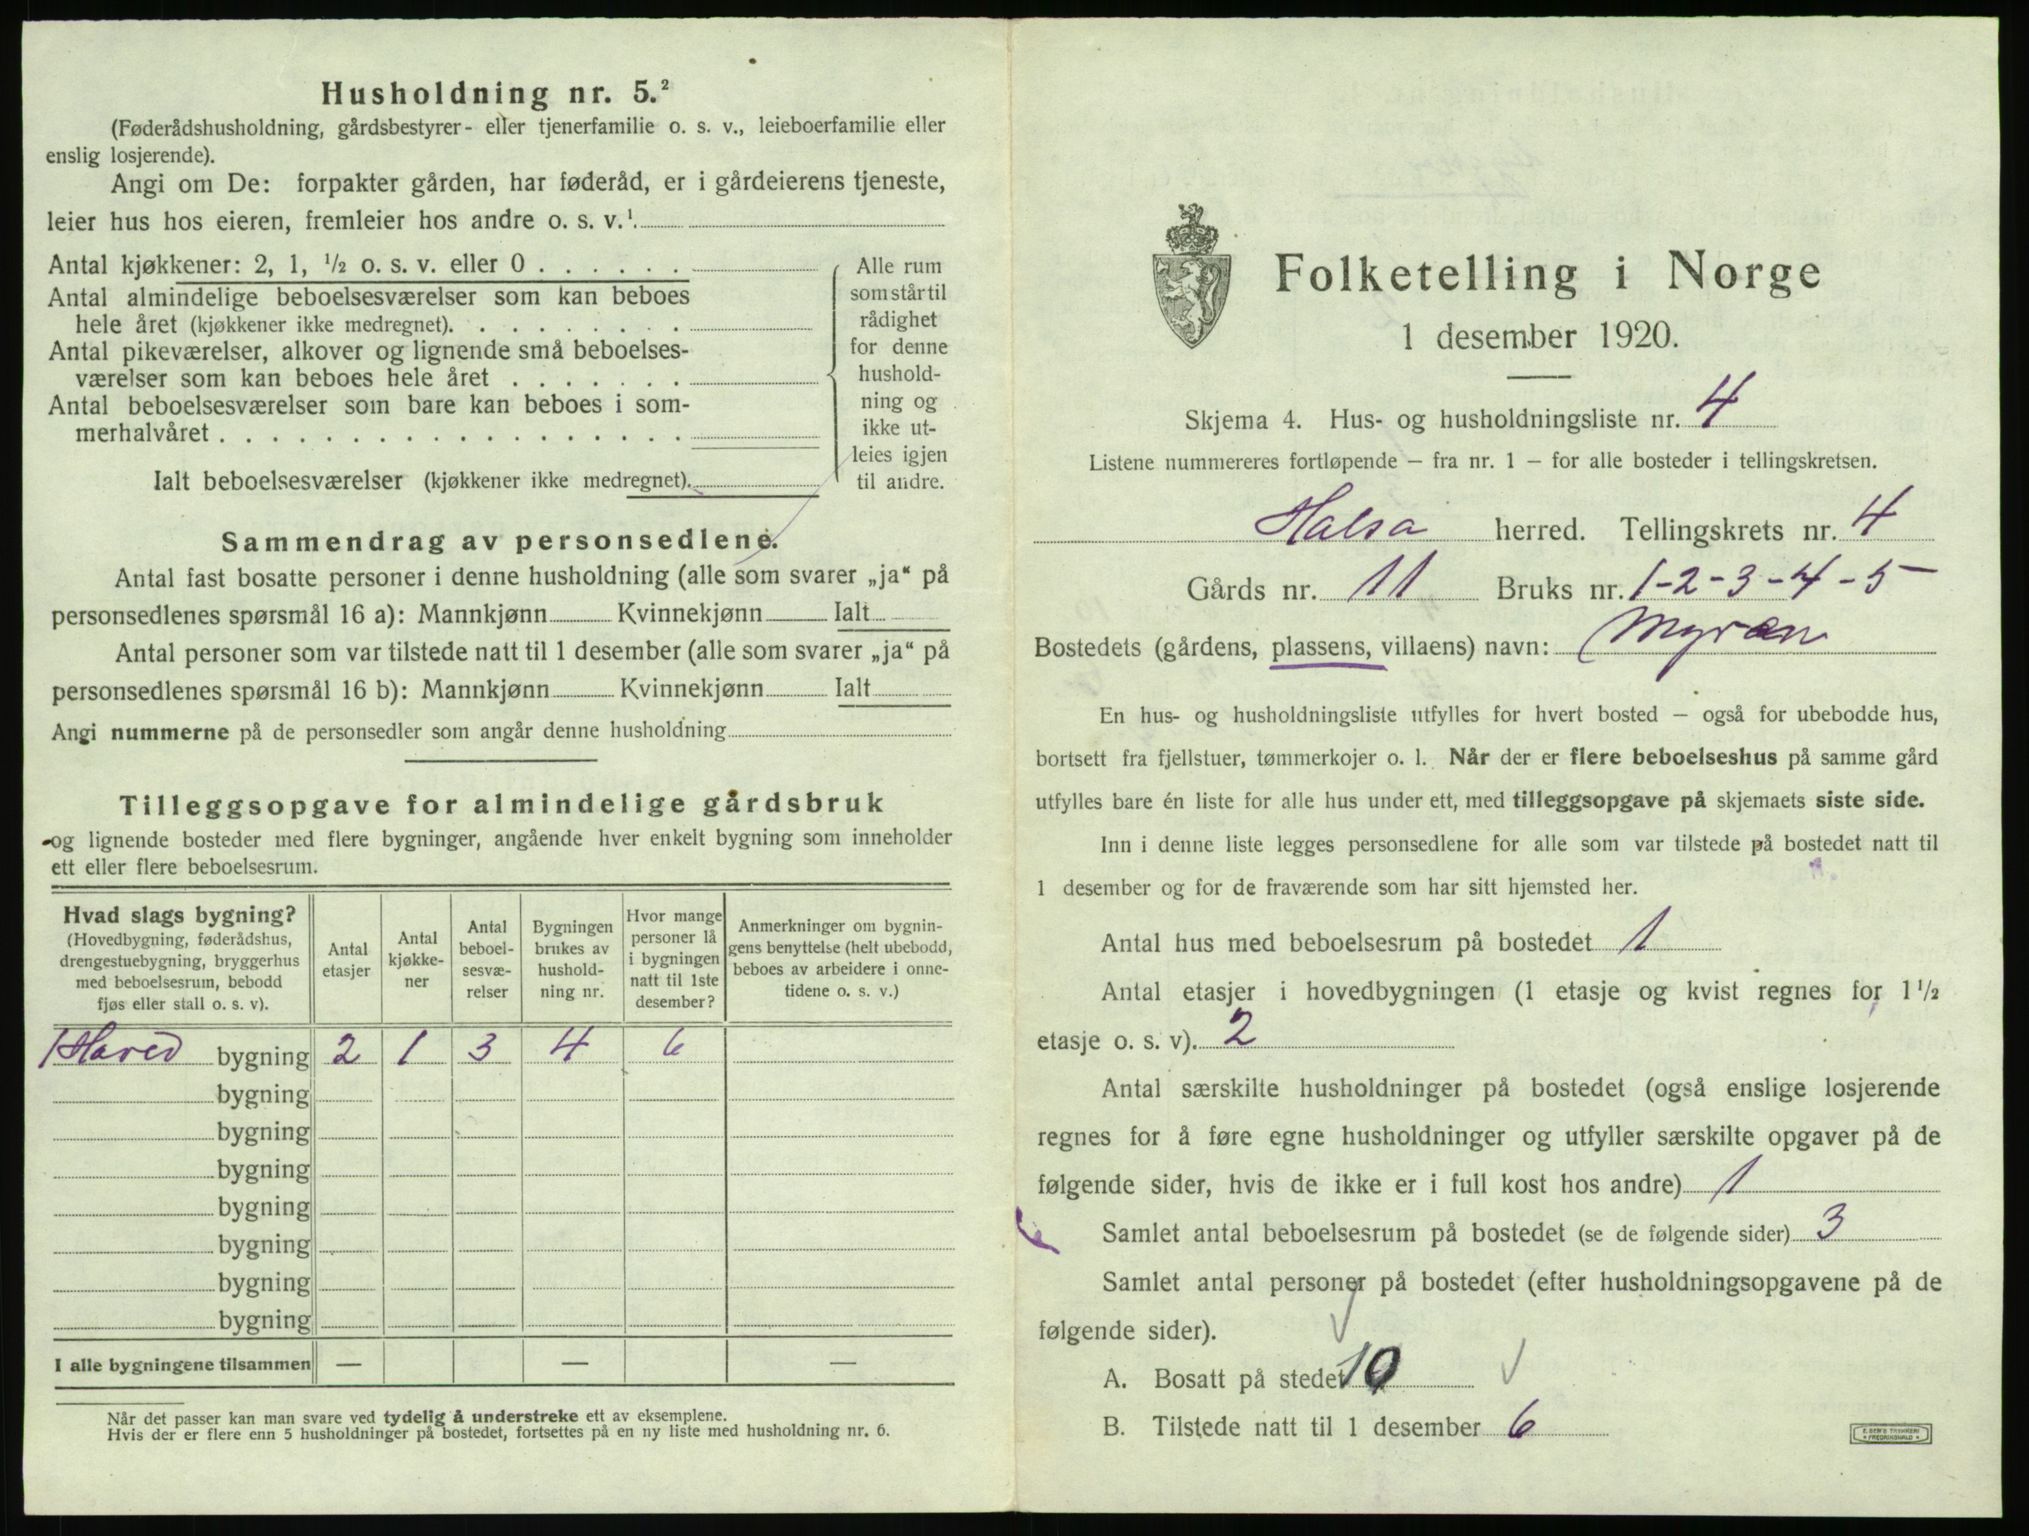 Husholdning nr. 5.²
(Føderådshusholdning, gårdsbestyrer- eller tjenerfamilie o. s. v., leieboerfamilie eller
enslig losjerende).
Angi om De: forpakter gården, har føderåd, er i gårdeierens tjeneste,
leier hus hos eieren, fremleier hos andre o. s. v.¹
Antal kjøkkener: 2, 1, ½ o. s. v. eller 0 . . . . . .
Antal almindelige beboelsesværelser som kan beboes
hele året (kjøkkener ikke medregnet). . . . . . . . .
Antal pikeværelser, alkover og lignende små beboelses-
værelser som kan beboes hele året . . . . . . .
Antal beboelsesværelser som bare kan beboes i som-
merhalvåret . . . . . . . . . . . . . . . . . .
Ialt beboelsesværelser (kjøkkener ikke medregnet).
Alle rum
som står til
rådighet
for denne
hushold-
ning og
ikke ut-
leies igjen
til andre.
Sammendrag av personsedlene.
Antal fast bosatte personer i denne husholdning (alle som svarer „ja“ på
personsedlenes spørsmål 16 a): Mannkjønn Kvinnekjønn Ialt
Antal personer som var tilstede natt til 1 desember (alle som svarer „ja“ på
personsedlenes spørsmål 16 b): Mannkjønn Kvinnekjønn Ialt
Angi nummerne på de personsedler som angår denne husholdning
Tilleggsopgave for almindelige gårdsbruk
og lignende bosteder med flere bygninger, angående hver enkelt bygning som inneholder
ett eller flere beboelsesrum.
Hvad slags bygning?
(Hovedbygning, føderådshus,
drengestuebygning, bryggerhus
med beboelsesrum, bebodd
fjøs eller stall o. s. v).
Antal
etasjer
Antal
kjøkke-
ner
Antal
beboel-
sesvæ-
relser
Bygningen
brukes av
hushold-
ning nr.
Hvor mange
personer lå
i bygningen
natt til 1ste
desember?
Anmerkninger om bygnin-
gens benyttelse (helt ubebodd,
beboes av arbeidere i onne-
tidene o. s. v.)
1 Hoved bygning 2 1 3 4 6
bygning
bygning
bygning
bygning
bygning
bygning
bygning
I alle bygningene tilsammen — — —
Når det passer kan man svare ved tydelig å understreke ett av eksemplene.
Hvis der er flere enn 5 husholdninger på bostedet, fortsettes på en ny liste med husholdning nr. 6.
Folketelling i Norge
1 desember 1920.
Skjema 4. Hus- og husholdningsliste nr. 4
Listene nummereres fortløpende — fra nr. 1 — for alle bosteder i tellingskretsen.
Halsa herred. Tellingskrets nr. 4
Gårds nr. 11 Bruks nr. 1-2-3-4-5
Bostedets (gårdens, plassens, villaens) navn: Myran
En hus- og husholdningsliste utfylles for hvert bosted — også for ubebodde hus,
bortsett fra fjellstuer, tømmerkojer o. l. Når der er flere beboelseshus på samme gård
utfylles bare én liste for alle hus under ett, med tilleggsopgave på skjemaets siste side.
Inn i denne liste legges personsedlene for alle som var tilstede på bostedet natt til
1 desember og for de fraværende som har sitt hjemsted her.
Antal hus med beboelsesrum på bostedet 1
Antal etasjer i hovedbygningen (1 etasje og kvist regnes for 1½
etasje o. s. v). 2
Antal særskilte husholdninger på bostedet (også enslige losjerende
regnes for å føre egne husholdninger og utfyller særskilte opgaver på de
følgende sider, hvis de ikke er i full kost hos andre) 1
Samlet antal beboelsesrum på bostedet (se de følgende sider) 3
Samlet antal personer på bostedet (efter husholdningsopgavene på de
følgende sider).
A. Bosatt på stedet 10
B. Tilstede natt til 1 desember 6